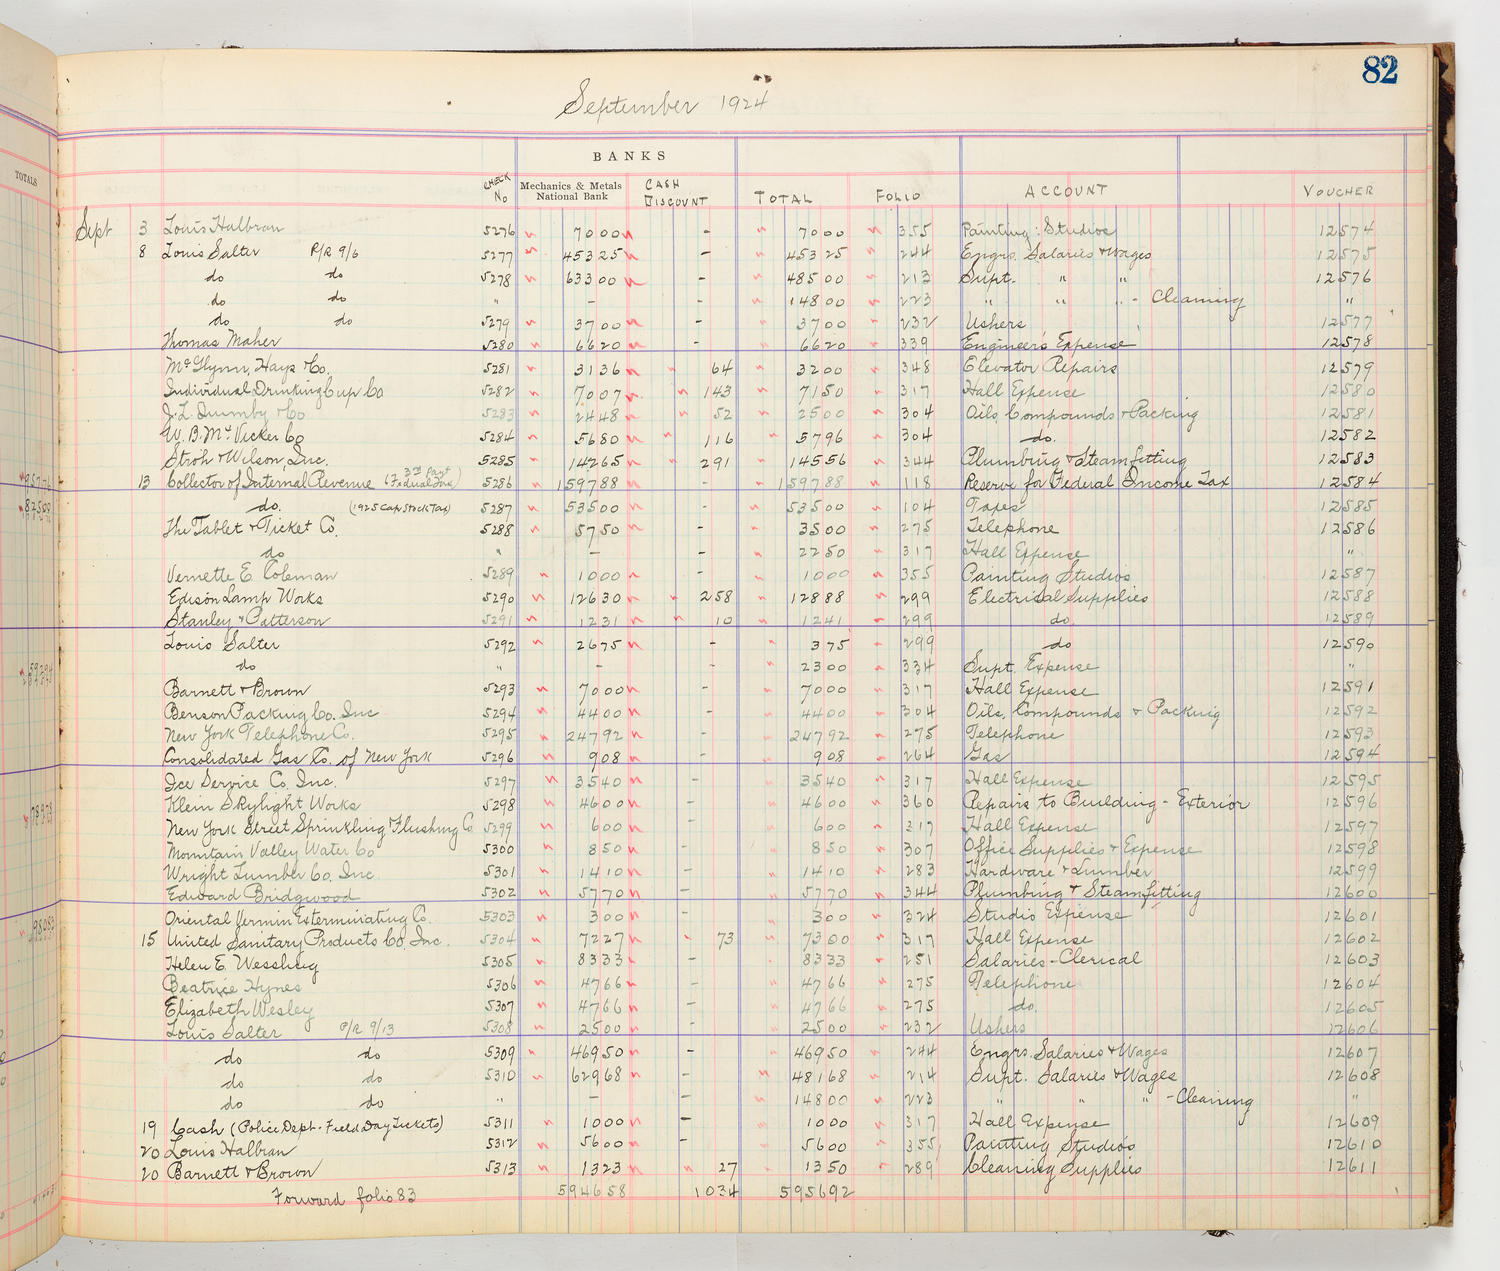 82
September 1924
BANKS
TOTALS
CHECK No Mechanics & Metals National Bank CASH DISCOUNT TOTAL FOLIO ACCOUNT VOUCHER
Sept 3 Louis Halbran 5276 " 7000 " - " 7000 " 355 Painting: Studios 12574
8 Louis Salter P/R 9/6 5277 " 45325 " - " 45325 " 244 Engrs. Salaries & Wages 12575
do do 5278 " 63300 " - " 48500 " 213 Supt. " " 12576
do do " - - " 14800 " 223 " " " - Cleaning "
do do 5279 " 3700 " - " 3700 " 232 Ushers 12577
Thomas Maher 5280 " 6620 " - " 6620 " 339 Engineer's Expense 12578
McGlynn, Hays & Co. 5281 " 3136 " 64 " 3200 " 348 Elevator Repairs 12579
Individual Drinking Cup Co 5282 " 7007 " 143 " 7150 " 317 Hall Expense 12580
J. L. Quimby & Co 5283 " 2448 " 52 " 2500 " 304 Oils, Compounds & Packing 12581
W. B. McVicker Co 5284 " 5680 " 116 " 5796 " 304 do. 12582
Stroh & Wilson, Inc. 5285 " 14265 " 291 " 14556 " 344 Plumbing & Steamfitting 12583
13 Collector of Internal Revenue (3rd Part Federal Tax) 5286 " 159788 " - " 159788 " 118 Reserve for Federal Income Tax 12584
do. (1925 Cap Stock Tax) 5287 " 53500 " - " 53500 " 104 Taxes 12585
The Tablet & Ticket Co. 5288 " 5750 " - " 3500 " 275 Telephone 12586
do " - - " 2250 " 317 Hall Expense "
Vernette E. Coleman 5289 " 1000 " - " 1000 " 355 Painting Studios 12587
Edison Lamp Works 5290 " 12630 " 258 " 12888 " 299 Electrical Supplies 12588
Stanley & Patterson 5291 " 1231 " 10 " 1241 " 299 do 12589
Louis Salter 5292 " 2675 - " 375 " 299 do 12590
do " - - " 2300 " 334 Supt. Expense "
Barnett & Brown 5293 " 7000 " - " 7000 " 317 Hall Expense 12591
Benson Packing Co. Inc 5294 " 4400 " - " 4400 " 304 Oils, Compounds & Packing 12592
New York Telephone Co. 5295 " 24792 " - " 24792 " 275 Telephone 12593
Consolidated Gas Co. of New York 5296 " 908 " - " 908 " 264 Gas 12594
Ice Service Co. Inc. 5297 " 3540 " - " 3540 " 317 Hall Expense 12595
Klein Skylight Works 5298 " 4600 " - " 4600 " 360 Repairs to Building - Exterior 12596
New York Street Sprinkling & Flushing Co 5299 " 600 " - " 600 " 317 Hall Expense 12597
Mountain Valley Water Co 5300 " 850 " - " 850 " 307 Office Supplies & Expense 12598
Wright Lumber Co. Inc. 5301 " 1410 " - " 1410 " 283 Hardware & Lumber 12599
Edward Bridgwood 5302 " 5770 " - " 5770 " 344 Plumbing & Steamfitting 12600
Oriental Vermin Exterminating Co. 5303 " 300 " - " 300 " 324 Studio Expense 12601
15 United Sanitary Products Co, Inc. 5304 " 7227 " 73 " 7300 " 317 Hall Expense 12602
Helen E. Wessling 5305 " 8333 " - " 8333 " 251 Salaries - Clerical 12603
Beatrice Hynes 5306 " 4766 " - " 4766 " 275 Telephone 12604
Elizabeth Wesley 5307 " 4766 " - " 4766 " 275 do. 12605
Louis Salter P/R 9/13 5308 " 2500 " - " 2500 " 232 Ushers 12606
do do 5309 " 46950 " - " 46950 " 244 Engrs. Salaries & Wages 12607
do do 5310 " 62968 " - " 48168 " 214 Supt. Salaries & Wages 12608
do do " - - " 14800 " 223 " " " - Cleaning "
19 Cash (Police Dept - Field Day Tickets) 5311 " 1000 " - " 1000 " 317 Hall Expense 12609
20 Louis Halbran 5312 " 5600 " - " 5600 " 355 Painting Studios 12610
20 Barnett & Brown 5313 " 1323 " 27 " 1350 " 289 Cleaning Supplies 12611
Forward folio 83 594658 1034 595692